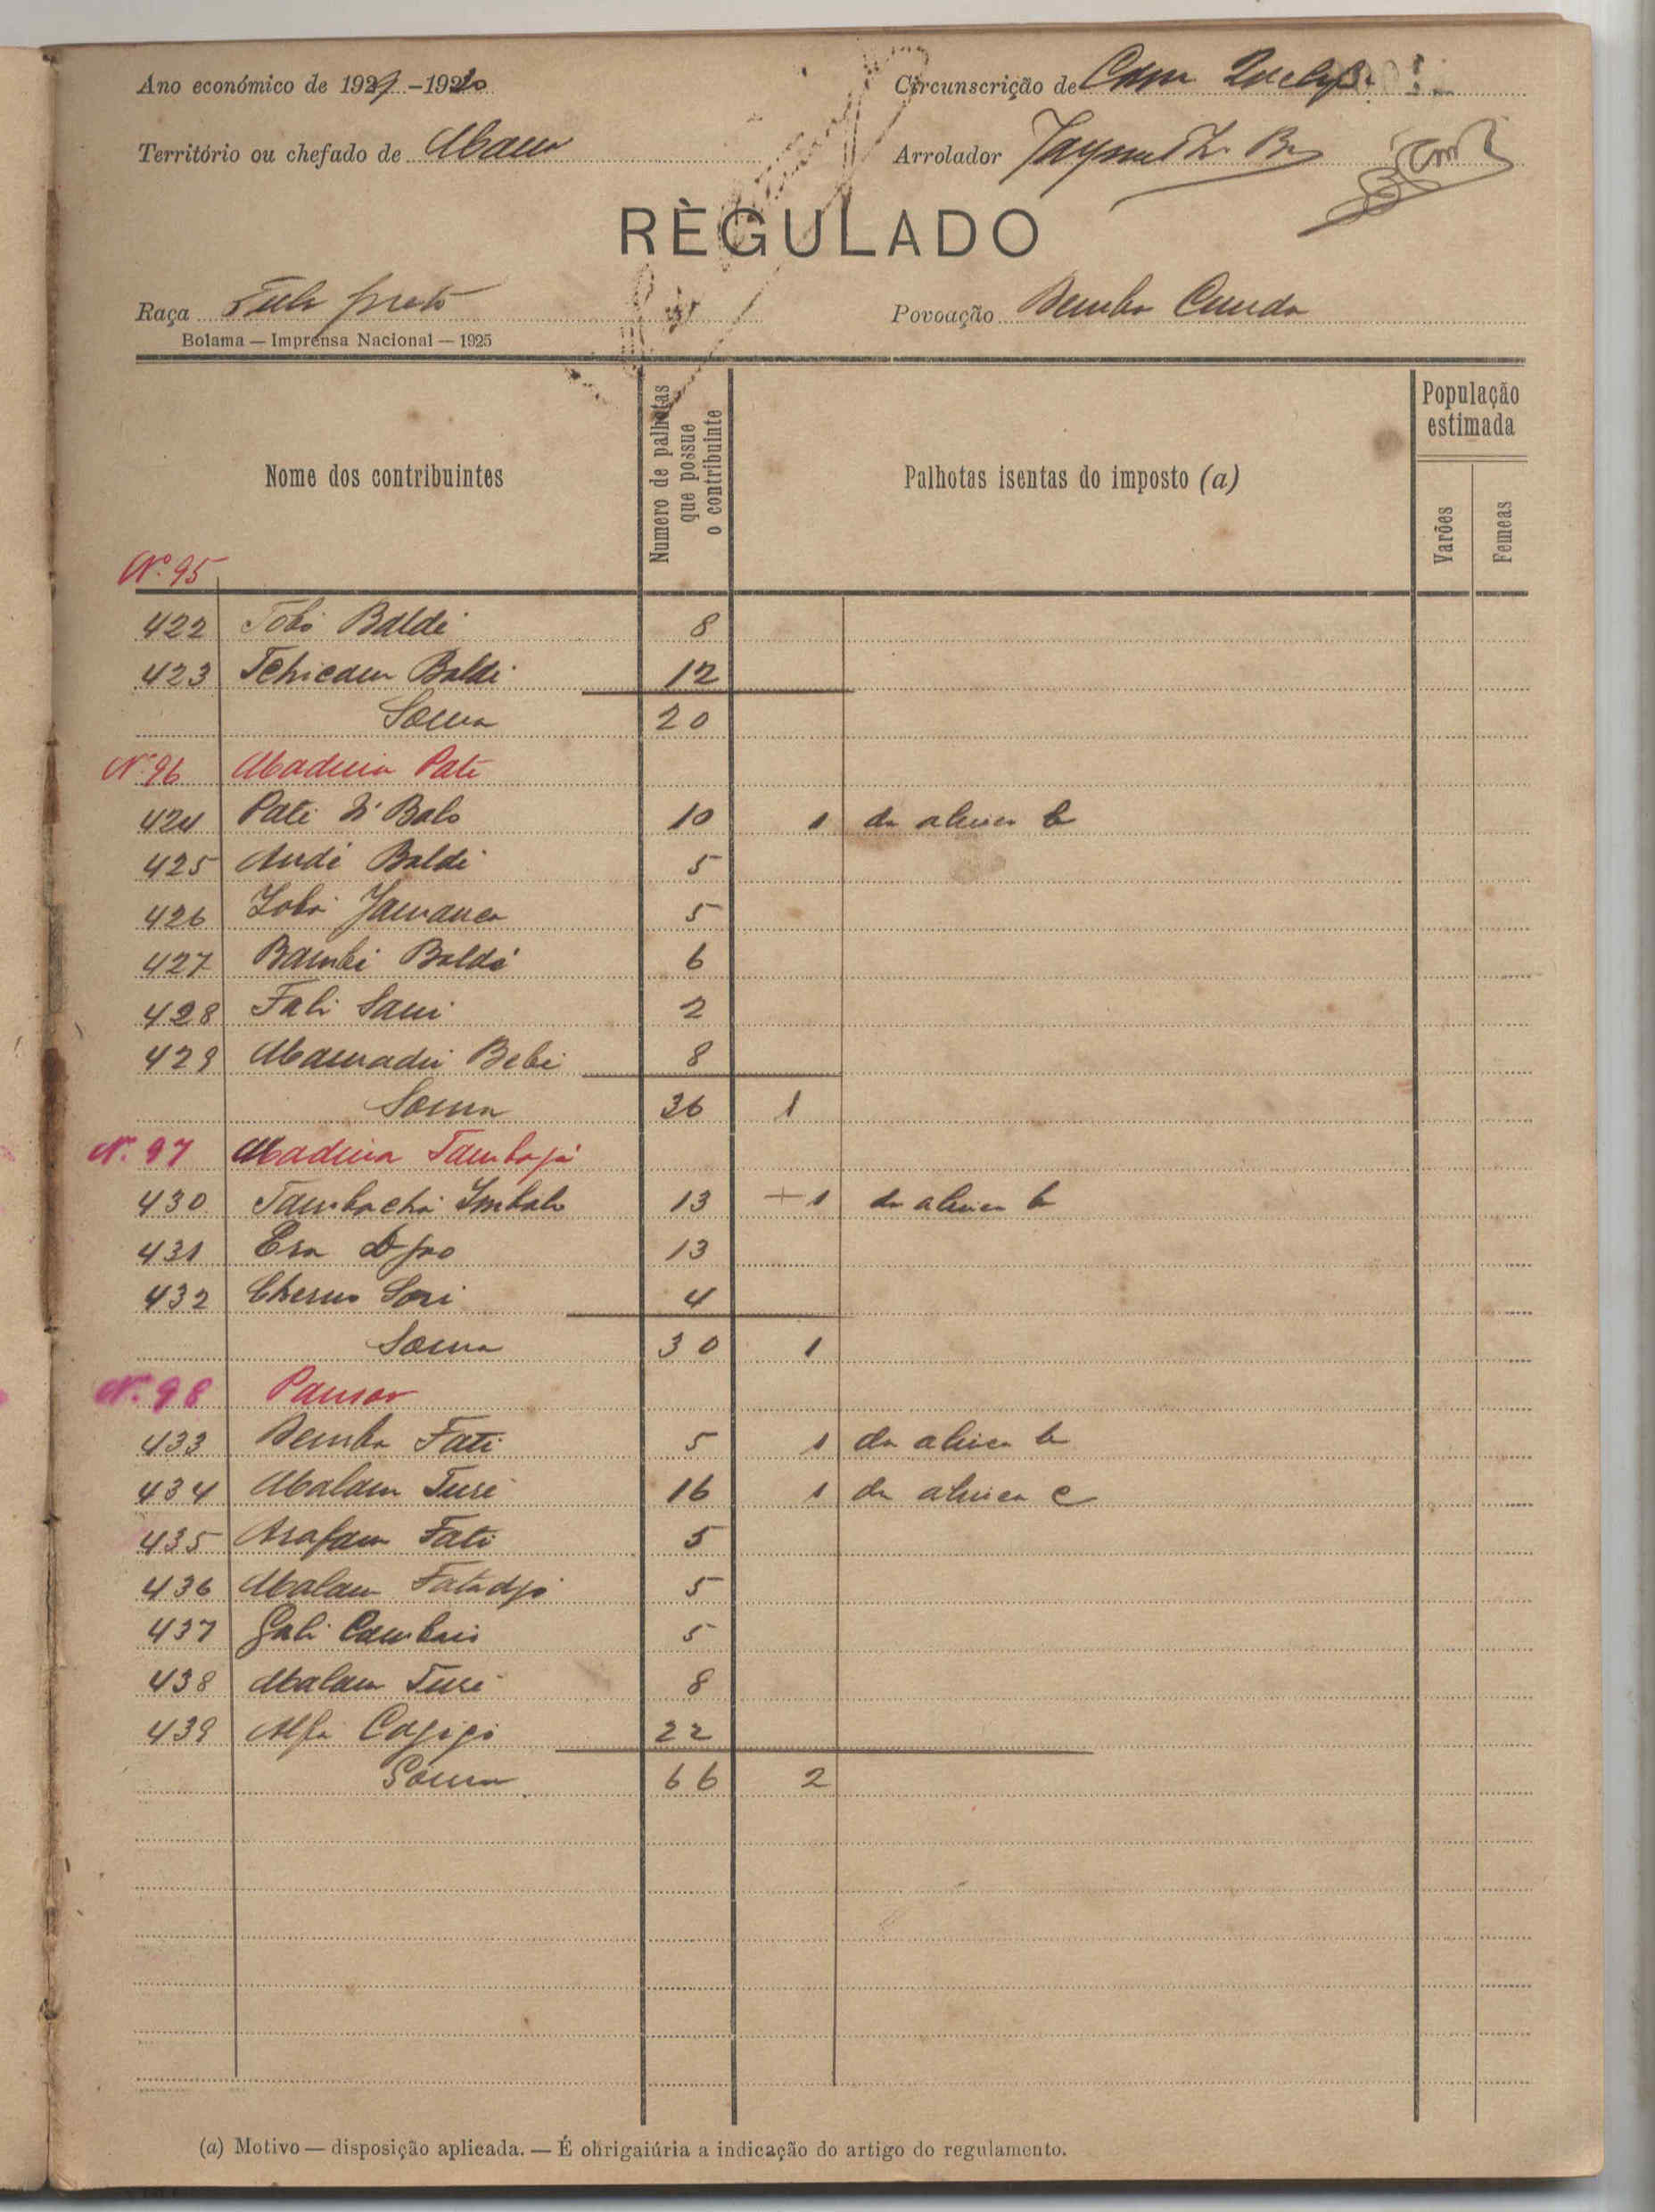 Ano económico de 1929-1930
Circunscrição de
Território ou chefado de
Arrolador
RÈGULADO
Raça Fula preto
Povoação Demba Cunda
Bolama — Imprensa Nacional — 1925
Nome dos contribuintes
Numero de palhotas que possue o contribuinte
Palhotas isentas do imposto (a)
População estimada
Varões
Femeas
Nº 95
422 Tobo Baldé 8
423 Baldé 12
Soma 20
Nº 96 Madina Paté
424 Paté N'Balo 10 1 da alinea b
425 Baldé 5
426 Jamanca 5
427 Bambé Baldé 6
428 Fali Sani 2
429 Mamadú Bebi 8
Soma 36 1
Nº 97 Madina
430 Imbalo 13 +1 da alinea b
431 13
432 Cherno Sori 4
Soma 30 1
Nº 98
433 Demba Fati 5 1 da alinea b
434 Malam Turé 16 1 da alinea c
435 Arafam Fati 5
436 Malam 5
437 5
438 Malam Turé 8
439 Alfa 22
Soma 66 2
(a) Motivo — disposição aplicada. — É ohrigaiúria a indicação do artigo do regulamento.